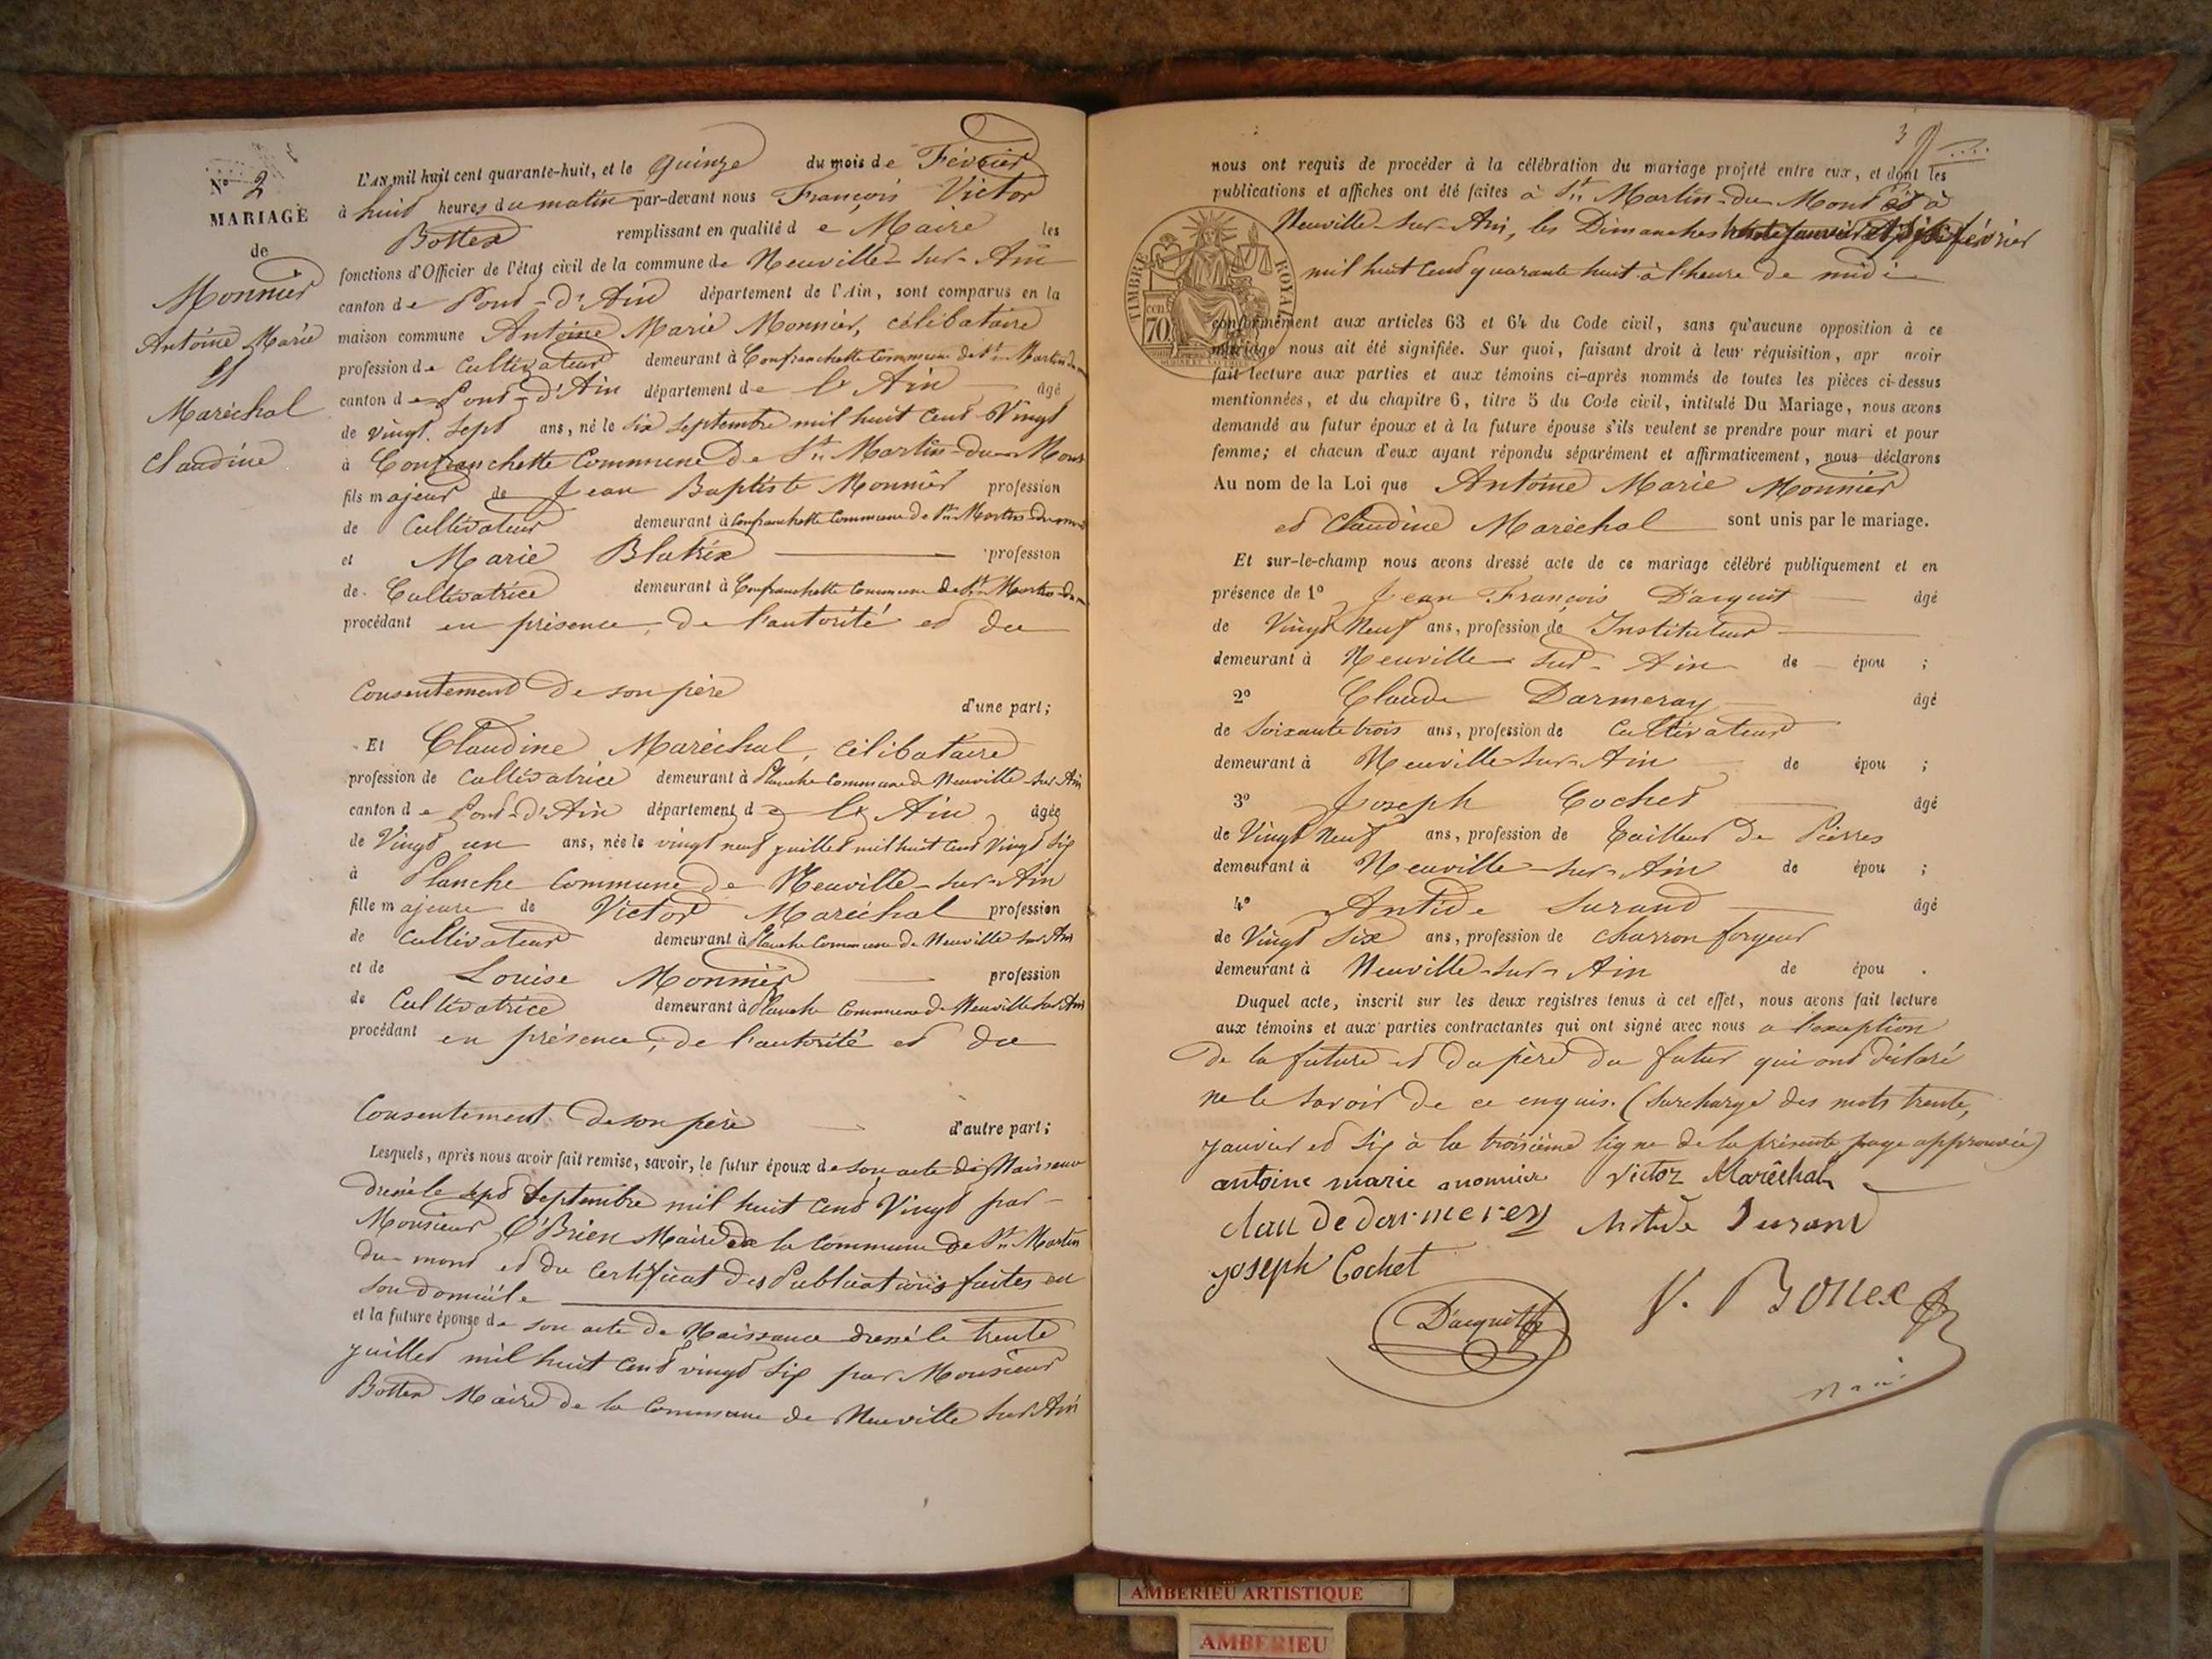 N° 2
MARIAGE
de
Monnier
Antoine Marie
Et
Maréchal
Claudine
L'AN mil huit cent quarante-huit, et le quinze du mois de Février
à huit heures du matin par-devant nous François Victor
Bottex remplissant en qualité de Maire les
fonctions d'Officier de l'état civil de la commune de Neuville-sur-Ain
canton de Pont-d'Ain département de l'Ain, sont comparus en la
maison commune Antoine Marie Monnier, célibataire
profession de Cultivateur demeurant à Confranchette Commune de St Martin du
canton de Pont-d'Ain département de l'Ain âgé
de vingt sept ans, né le six septembre mil huit cent vingt
à Confranchette Commune de St Martin-du-Mont
fils majeur de Jean Baptiste Monnier profession
de Cultivateur demeurant à Confranchette Commune de St Martin-du-mont
et Marie Blatrix profession
de Cultivatrice demeurant à Confranchette Commune de St Martin-du-m
procédant en présence, de l'autorité et du
Consentement de son père
d'une part;
Et Claudine Maréchal, célibataire
profession de Cultivatrice demeurant à Planche Commune de Neuville-sur-Ain
canton de Pont-d'Ain département de l'Ain âgée
de Vingt un ans, née le vingt neuf juillet mil huit cent vingt six
à Planche Commune de Neuville-sur-Ain
fille majeure de Victor Maréchal profession
de Cultivateur demeurant à Planche Commune de Neuville sur Ain
et de Louise Monnier profession
de Cultivatrice demeurant à Planche Commune de Neuville sur Ain
procédant en présence, de l'autorité et du
Consentement de son père d'autre part;
Lesquels, après nous avoir fait remise, savoir, le futur époux de son acte de Naissance
dressé le sept Septembre mil huit cent Vingt par
Monsieur O'Brien Maire de la Commune de St Martin
du-mont et du Certificat des Publications faites en
son domicile
et la future épouse de son acte de Naissance dressé le trente
juillet mil huit cent vingt six par Monsieur
Bottex Maire de la Commune de Neuville sur Ain
3
nous ont requis de procéder à la célébration du mariage projeté entre eux, et dont les
publications et affiches ont été faites à St Martin-du-Mont et à
Neuville-sur-Ain, les Dimanches trente janvier et six février
mil huit cent quarante huit à l'heure de midi
TIMBRE ROYAL
cen 70
conformément aux articles 63 et 64 du Code civil, sans qu'aucune opposition à ce
mariage nous ait été signifiée. Sur quoi, faisant droit à leur réquisition, apr avoir
fait lecture aux parties et aux témoins ci-après nommés de toutes les pièces ci-dessus
mentionnées, et du chapitre 6, titre 5 du Code civil, intitulé Du Mariage, nous avons
demandé au futur époux et à la future épouse s'ils veulent se prendre pour mari et pour
femme; et chacun d'eux ayant répondu séparément et affirmativement, nous déclarons
Au nom de la Loi que Antoine Marie Monnier
et Claudine Maréchal sont unis par le mariage.
Et sur-le-champ nous avons dressé acte de ce mariage célébré publiquement et en
présence de 1° Jean François Dacquit âgé
de Vingt Neuf ans, profession de Instituteur
demeurant à Neuville-sur-Ain de épou ;
2° Claude Darmeray âgé
de Soixante trois ans, profession de Cultivateur
demeurant à Neuville-sur-Ain de épou ;
3° Joseph Cochet âgé
de Vingt Neuf ans, profession de Tailleur de Pierres
demeurant à Neuville-sur-Ain de épou ;
4° Antide Durand âgé
de Vingt Six ans, profession de charron forgeur
demeurant à Neuville-sur-Ain de épou .
Duquel acte, inscrit sur les deux registres tenus à cet effet, nous avons fait lecture
aux témoins et aux parties contractantes qui ont signé avec nous a l'exception
de la future et du père du futur qui ont déclaré
ne le savoir de ce enquis. (Surcharge des mots trente,
janvier et six à la troisième ligne de la présente page approuvée)
antoine marie monnier Victor Maréchal
Clau de darmerey Antide Durand
joseph Cochet
Dacquit
V. Bottex
AMBERIEU ARTISTIQUE
AMBERIEU